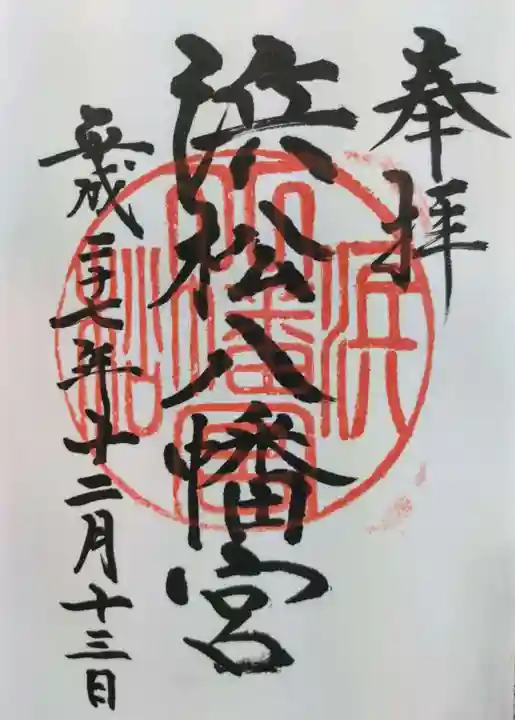 奉拝
浜松八幡宮
平成二十七年十二月十三日
浜松八幡宮